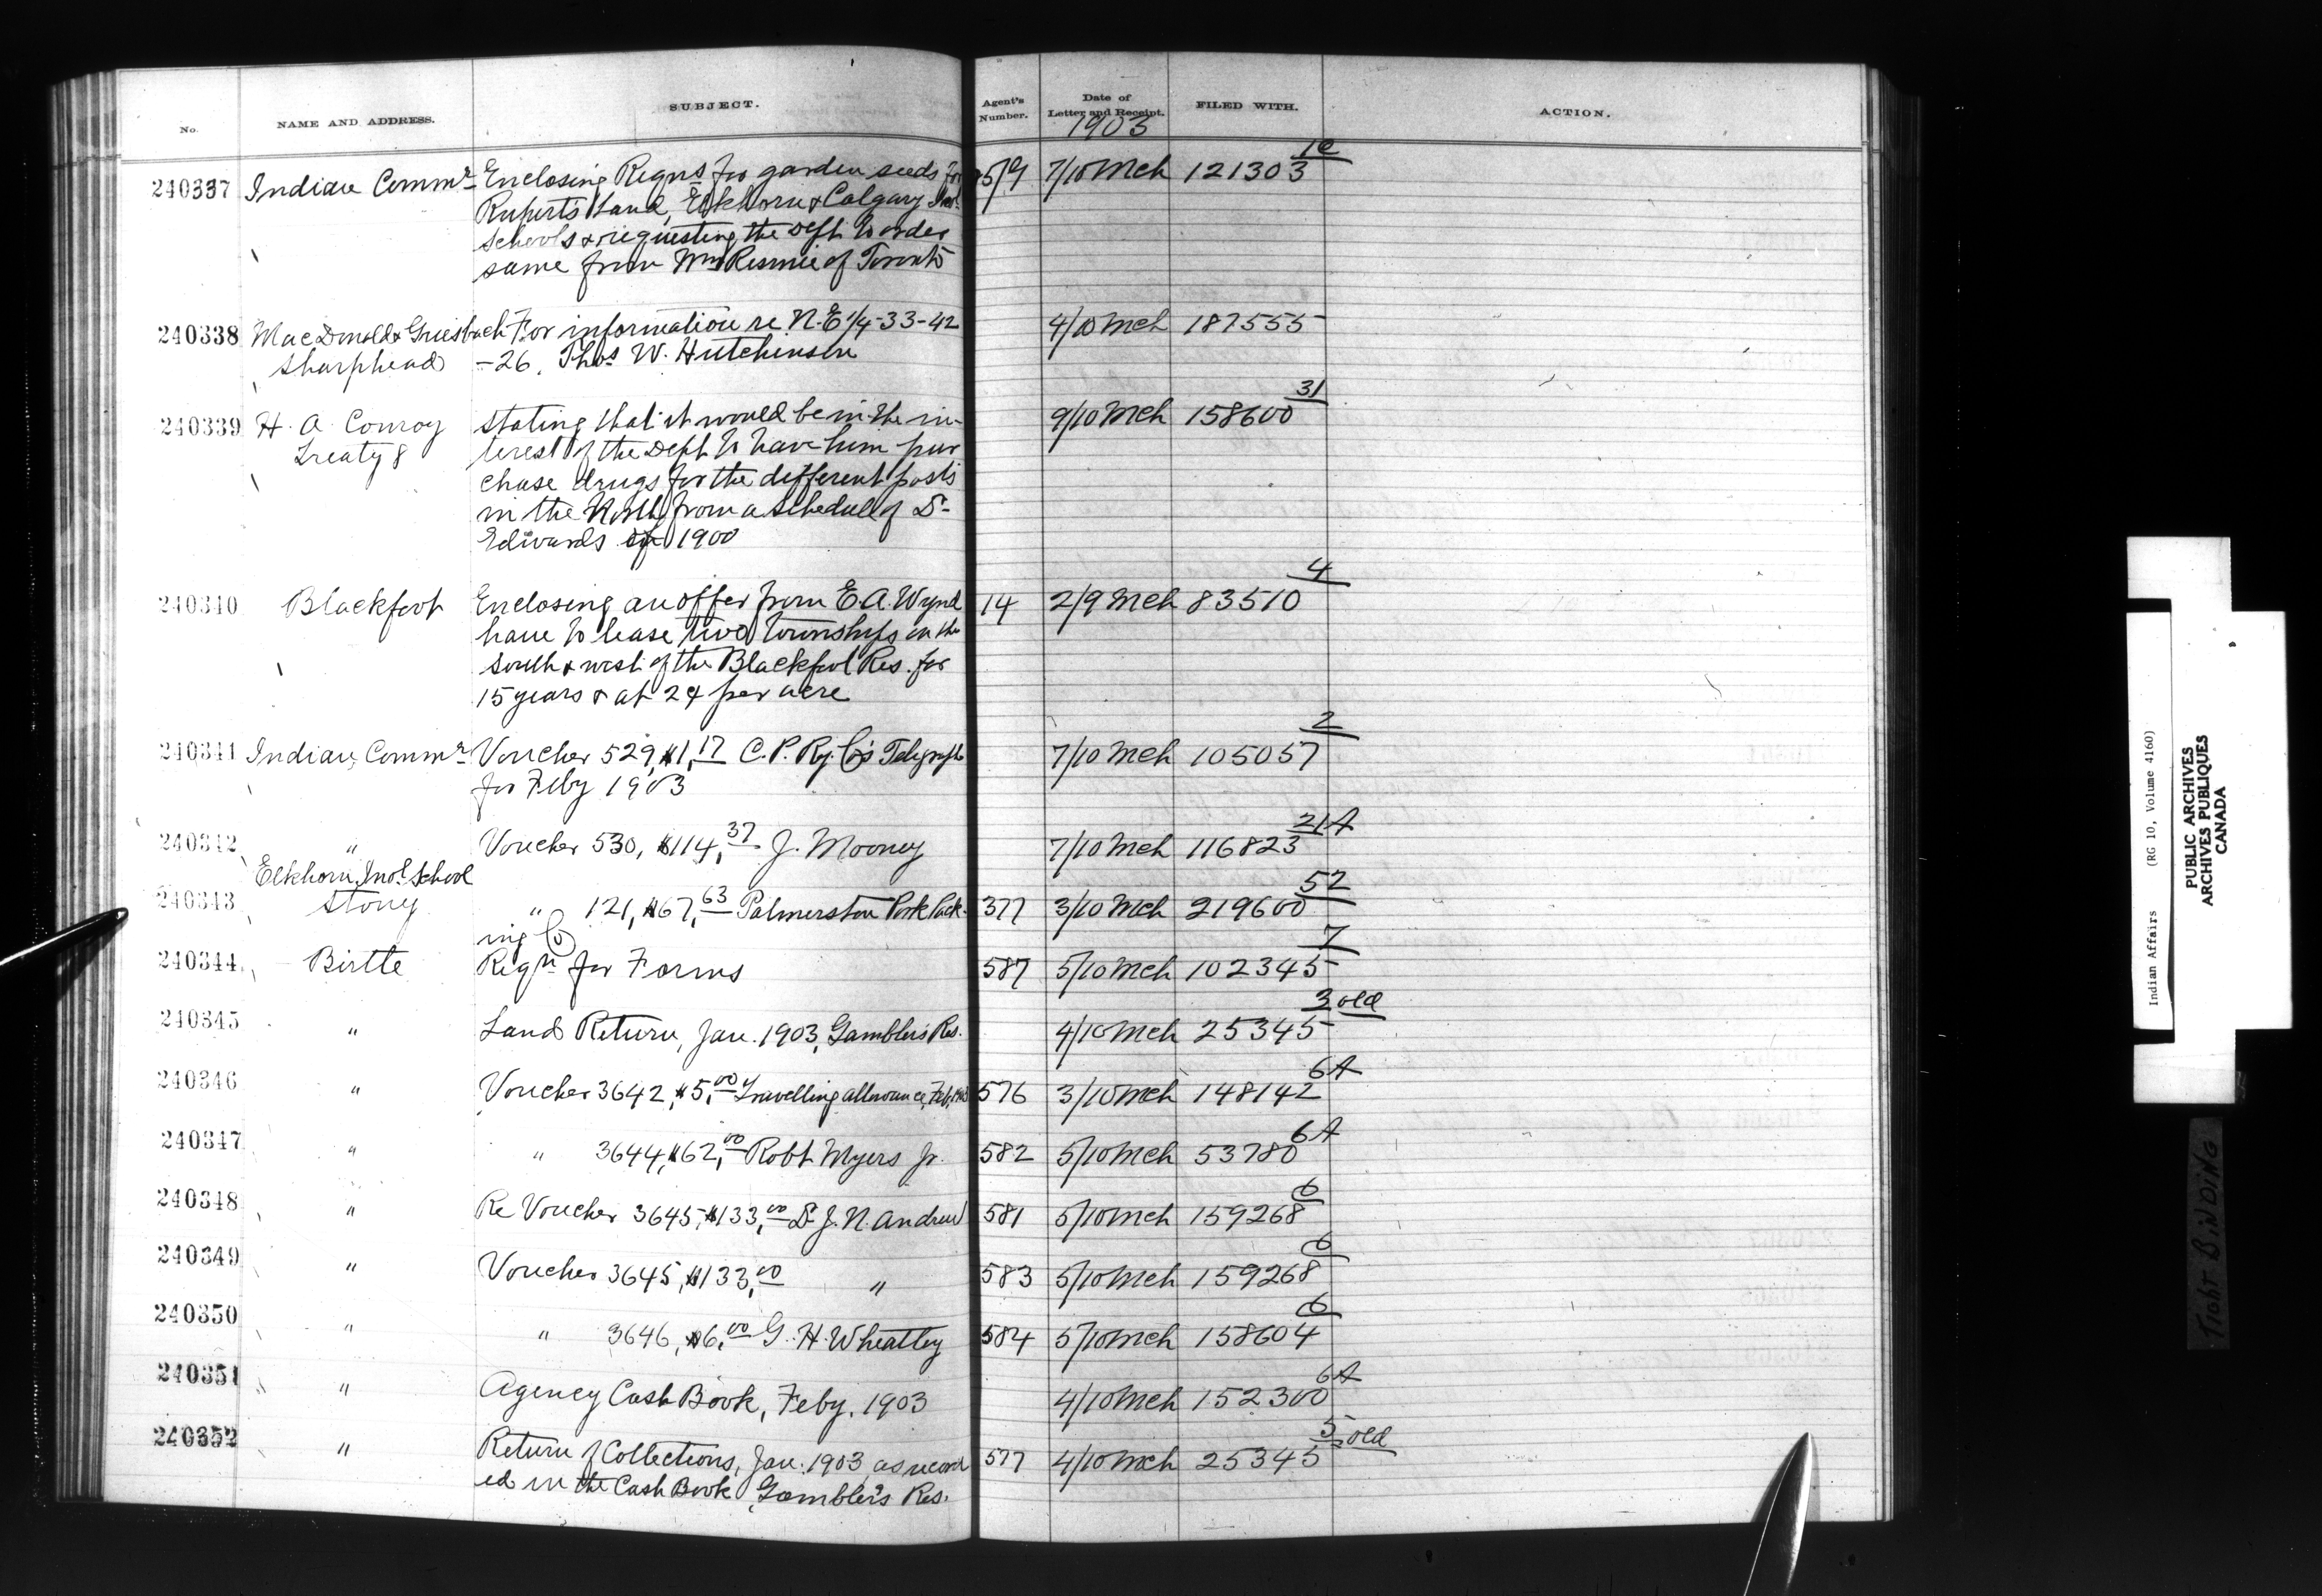 No. NAME AND ADDRESS. SUBJECT. Agent's Number. Date of Letter and Receipt. FILED WITH. ACTION.
1903
240337 Indian Commr Enclosing Reqns for garden seeds for 7/10 Mch 121303
Ruperts Land, Elkhorn & Calgary Ind.
schools & requesting the Dept to order
same from Wm Rennie of Toronto
240338 MacDonald & Griesbach For information re N.E 1/4-33-42 4/10 Mch 187555
Sharphead -26, Thos W. Hutchinson
31
240339 H. A. Conroy stating that it would be in the in- 9/10 Mch 158600
Treaty 8 terest of the Dept to have him pur
chase drugs for the different posts
in the North from a schedule of Dr
Edwards of 1900
4
240340 Blackfoot Enclosing an offer from E. A. Wynd 14 2/9 Mch 83510
ham to lease two townships on the
south & west of the Blackfoot Res. for
15 years & at 2¢ per acre
2
240341 Indian Commr Voucher 529, $1,17 C. P. Ry. Co's Telegraph 7/10 Mch 105057
for Feby 1903
21A
240342 " Voucher 530, $114,37 J. Mooney 7/10 Mch 116823
Elkhorn Ind. School
52
240343 Stony " 121, $67,63 Palmerston Pork Pack- 377 3/10 Mch 219600
ing Co
7
240344 Birtle Reqn for Forms 587 5/10 Mch 102345
3 old
240345 " Land Return, Jan. 1903, Gambler's Res. 4/10 Mch 25345
6A
240346 " Voucher 3642, $5,00 Travelling allowance, Feb, 1903 576 3/10 Mch 148142
6A
240347 " " 3644, $62,00 Robt Myers Jr. 582 5/10 Mch 53780
6
240348 " Re Voucher 3645, $133,00 Dr J. N. Andrew 581 5/10 Mch 159268
6
240349 " Voucher 3645, $133,00 " 583 5/10 Mch 159268
6
240350 " " 3646, $6,00 G. H. Wheatley 584 5/10 Mch 158604
6A
240351 " Agency Cash Book, Feby, 1903 4/10 Mch 152300
5 old
240352 " Return of Collections, Jan. 1903, as record 577 4/10 Mch 25345
ed in the Cash Book Gambler's Res.
Indian Affairs (RG 10, Volume 4160)
PUBLIC ARCHIVES
ARCHIVES PUBLIQUES
CANADA
TIGHT BINDING